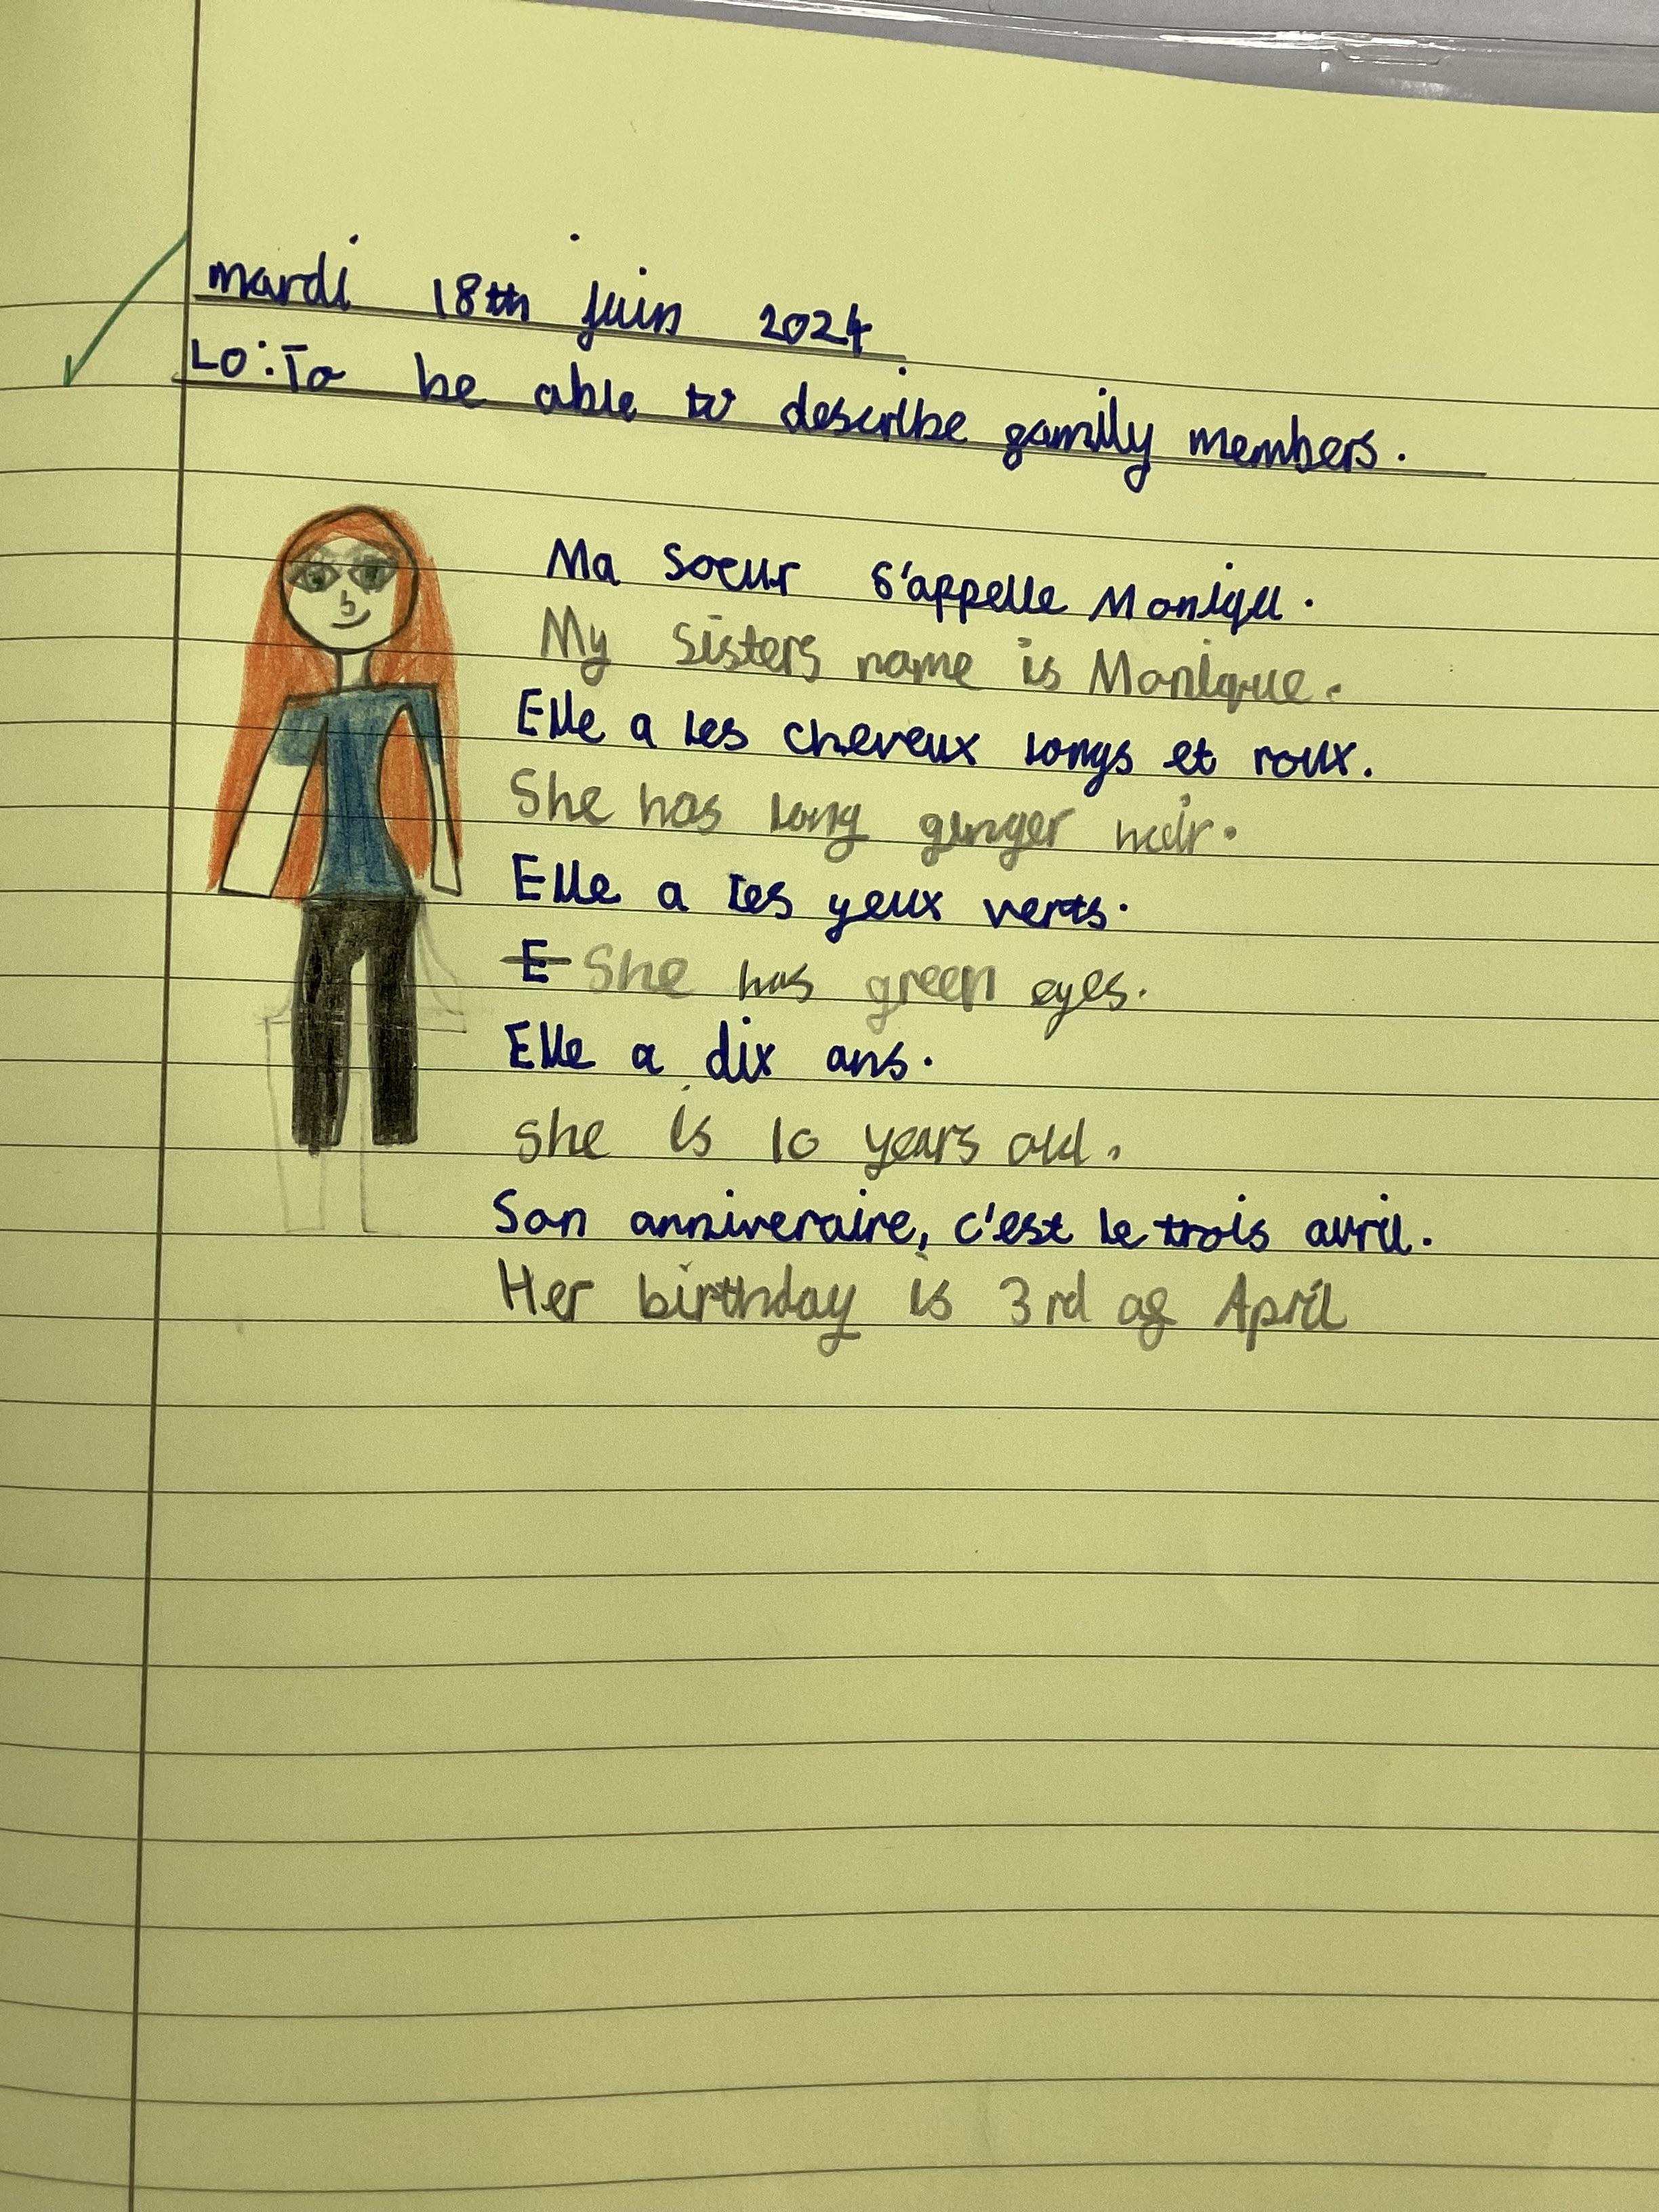 mardi 18th juin 2024
LO: To be able to describe family members.
Ma soeur s'appelle Moniqu.
My sisters name is Monique.
Elle a les cheveux longs et roux.
She has long ginger hair.
Elle a les yeux verts.
E She has green eyes.
Elle a dix ans.
She is 10 years old.
Son anniveraire, c'est le trois avril.
Her birthday is 3rd of April